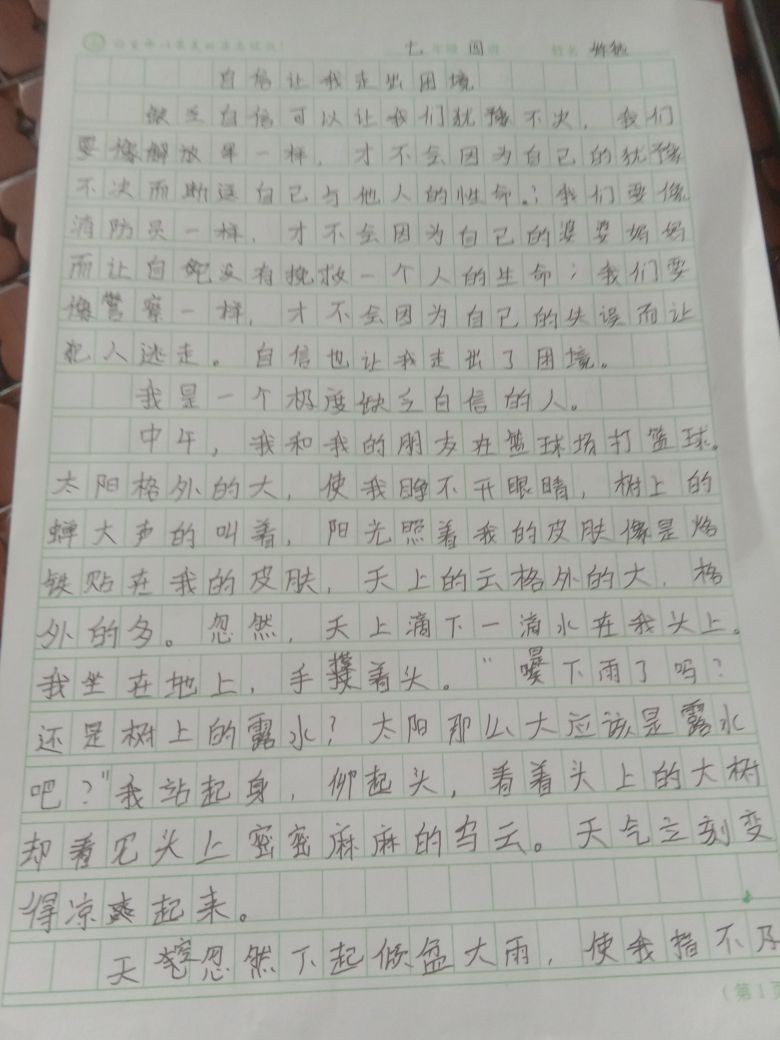 七年级 四班 姓名
自信让我走出困境
缺乏自信可以让我们犹豫不决，我们
要像解放军一样，才不会因为自己的犹豫
不决而断送自己与他人的性命；我们要像
消防员一样，才不会因为自己的婆婆妈妈
而让自己没有挽救一个人的生命；我们要
像警察一样，才不会因为自己的失误而让
犯人逃走。自信也让我走出了困境。
我是一个极度缺乏自信的人。
中午，我和我的朋友在篮球场打篮球。
太阳格外的大，使我睁不开眼睛，树上的
蝉大声的叫着，阳光照着我的皮肤像是烙
铁贴在我的皮肤，天上的云格外的大，格
外的多。忽然，天上滴下一滴水在我头上。
我坐在地上，手摸着头。“下雨了吗？
还是树上的露水？太阳那么大应该是露水
吧？”我站起身，仰起头，看着头上的大树
却看见头上密密麻麻的乌云。天气立刻变
得凉爽起来。
天空忽然下起倾盆大雨，使我措不及
（第1页